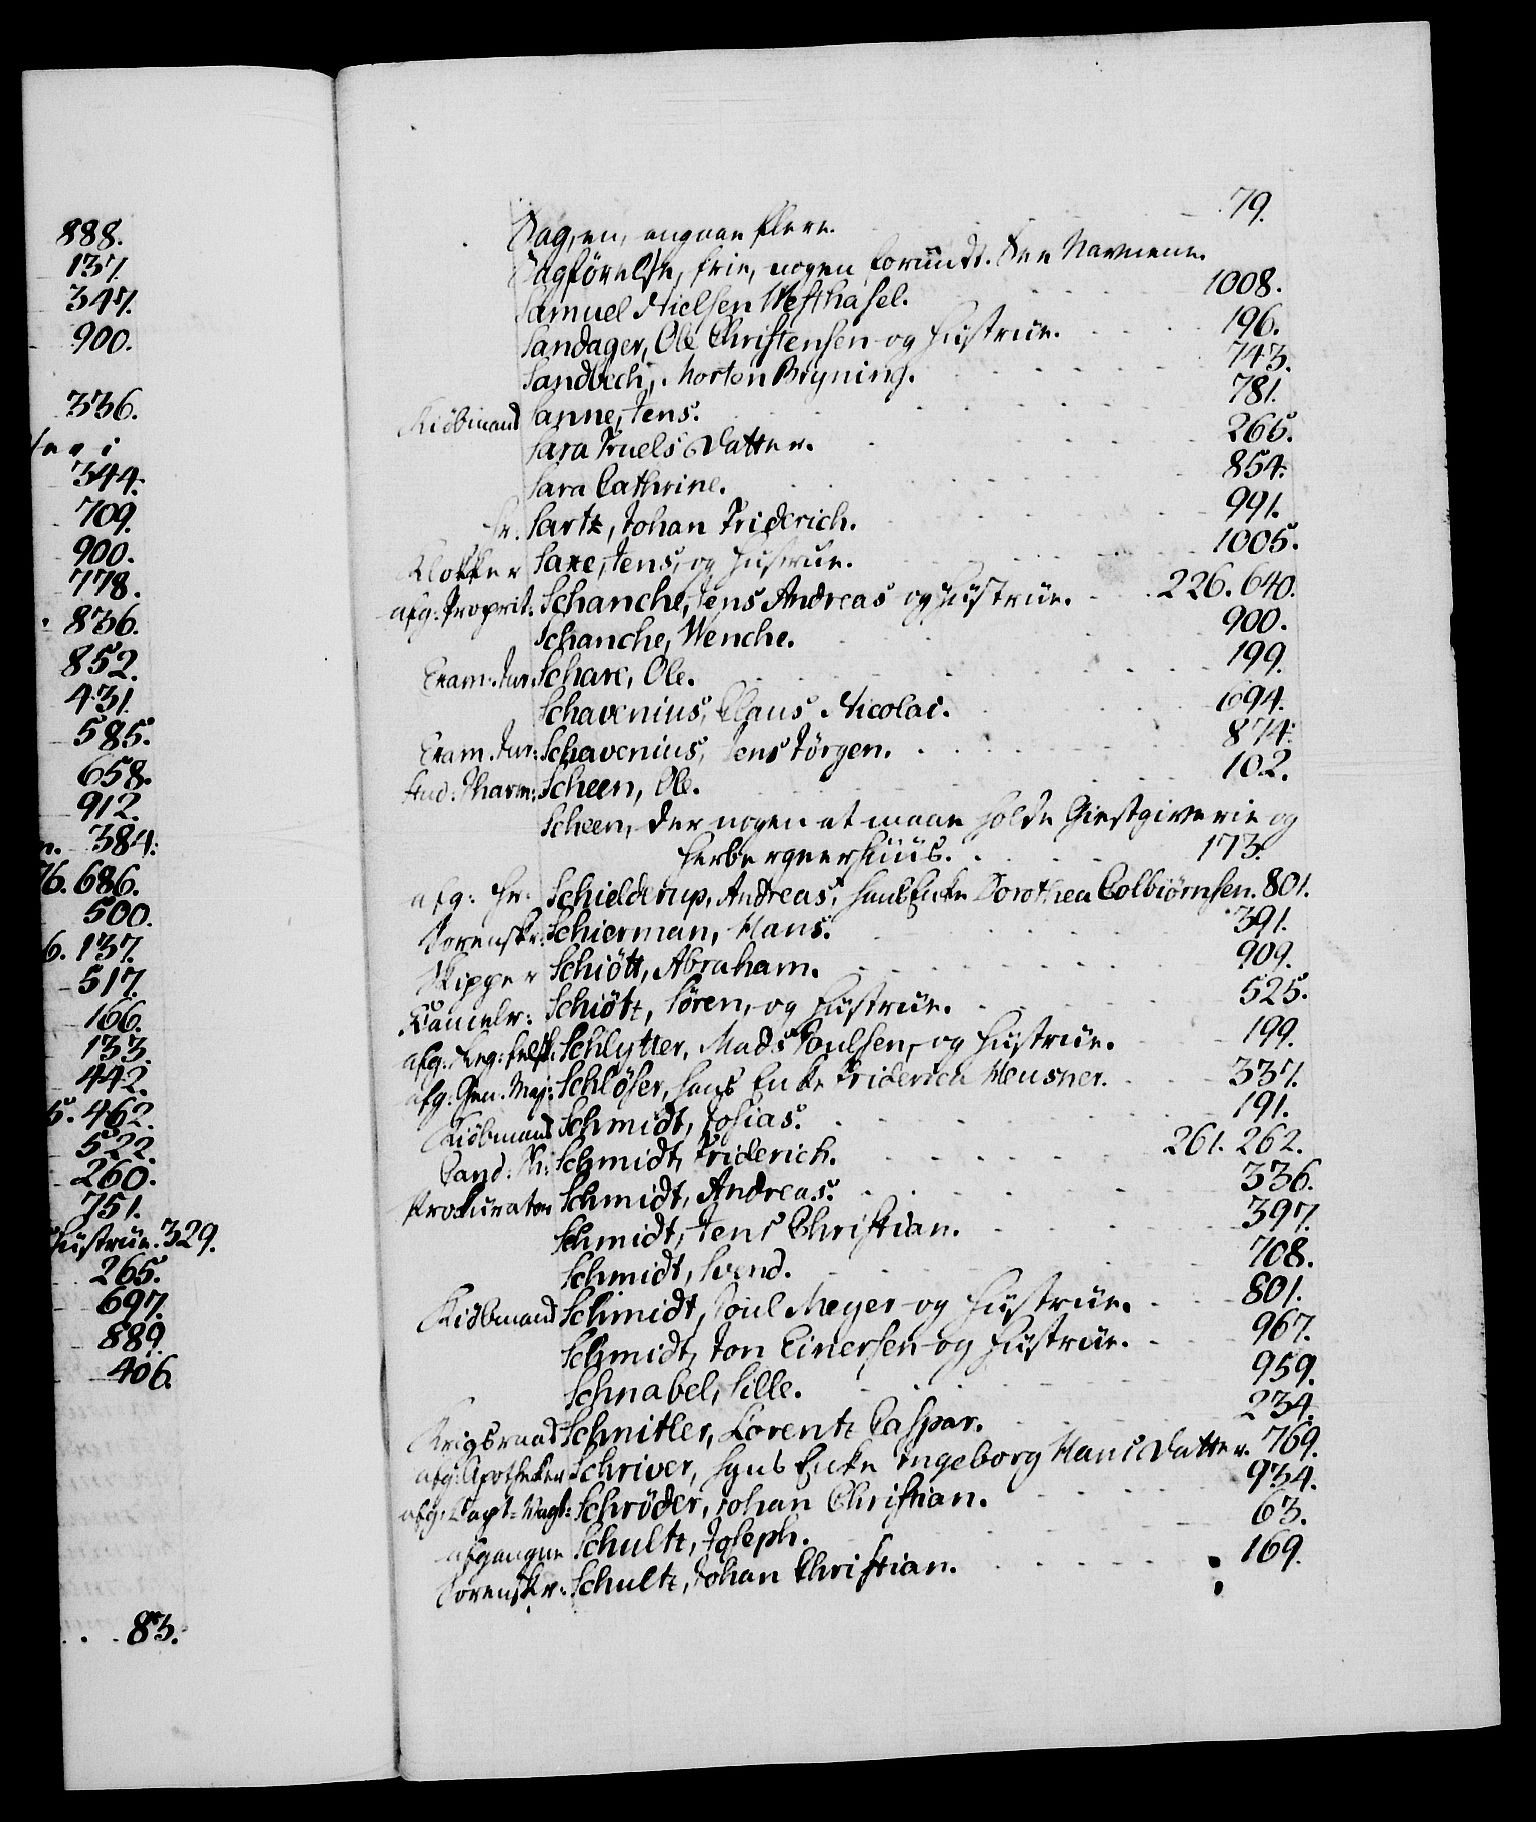 888.
137.
347.
900.
336.
344.
709.
900.
778.
836.
852.
431.
585.
658.
912.
384.
76. 686.
500.
6. 137.
517.
166.
133.
442.
5. 462.
522.
260.
751.
Hustrue. 329.
265.
697.
889.
406.
83.
Sag, en, angaae flere. 79.
Sagförelse, frie, nogen forundt. See Navnene.
Samuel Nielsen Westhasel. 1008.
Sandager, Ole Christensen og Hustrue. 196.
Sandbech, Morten Bryning. 743.
Kiöbmand Sanne, Jens. 781.
Sara Truels Datter. 265.
Sara Cathrine. 854.
Hr. Sartz, Johan Friderich. 991.
Klokker Saxe, Jens, og Hustrue. 1005.
afg: Proprit: Schanche, Jens Andreas og Hustrue. 226. 640.
Schanche, Wenche. 900.
Exam: Jur: Scharc, Ole. 199.
Schavenius, Claus Nicolai. 1094.
Exam. Jur: Schavenius, Jens Jörgen. 874.
Stud: Pharm: Scheen, Ole. 102.
Scheen, der nogen at maae holde Giestgiverie og
Herbergeerhuus. 173.
afg: Hr: Schielderup, Andreas, hans Enke Dorothea Colbiörnsen. 801.
Sorenskr: Schierman, Hans. 391.
Skipper Schiött, Abraham. 909.
Schiötz, Sören, og Hustrue. 525.
afg: Reg: Feldsk: Schlytter, Mads Poulsen, og Hustrue. 199.
afg: Gen. Maj: Schlöser, hans Enke Friderica Meusner. 337.
Kiöbmand Schmidt, Josias. 191.
Cand: Schmidt, Friderich. 261. 262.
Prokurator Schmidt, Andreas. 336.
Schmidt, Jens Christian. 397.
Schmidt, Svend. 708.
Kiöbmand Schmidt, Poul Meyer og Hustrue. 801.
Schmidt, Jon Einersen og Hustrue. 967.
Schnabel, Sille. 959.
Krigsraad Schnitler, Lorentz Caspar. 234.
afg: Apotheker Schriver, hans Enke Ingeborg Hans Datter. 769.
afg: Capt: Vagt: Schröder, Johan Christian. 934.
afgangne Schultz, Joseph. 63.
Sorenskr: Schultz, Johan Christian. 169.